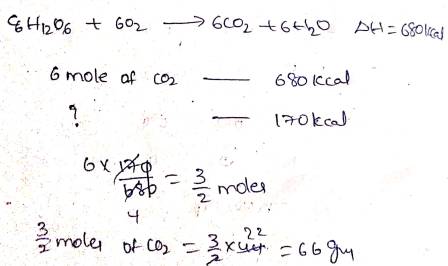 C6H12O6 + 6O2 ⟶ 6CO2 + 6H2O ΔH = 680kcal
6 mole of CO2 — 680 kcal
? — 170 kcal
6 × 170/680 4 = 3/2 moles
3/2 moles of CO2 = 3/2 × 44 22 = 66 gm